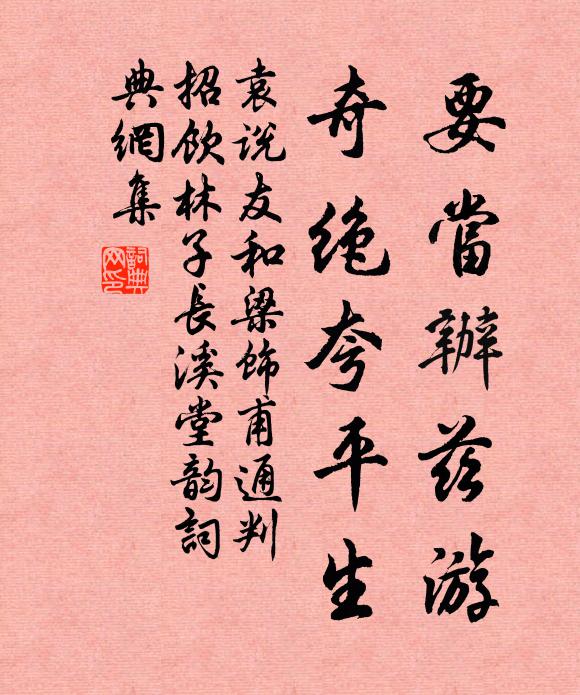 要當辦茲游
奇絶夸平生
袁说友和梁饰甫通判
招飲林子長溪堂韵詞
典網集
詞典
网印